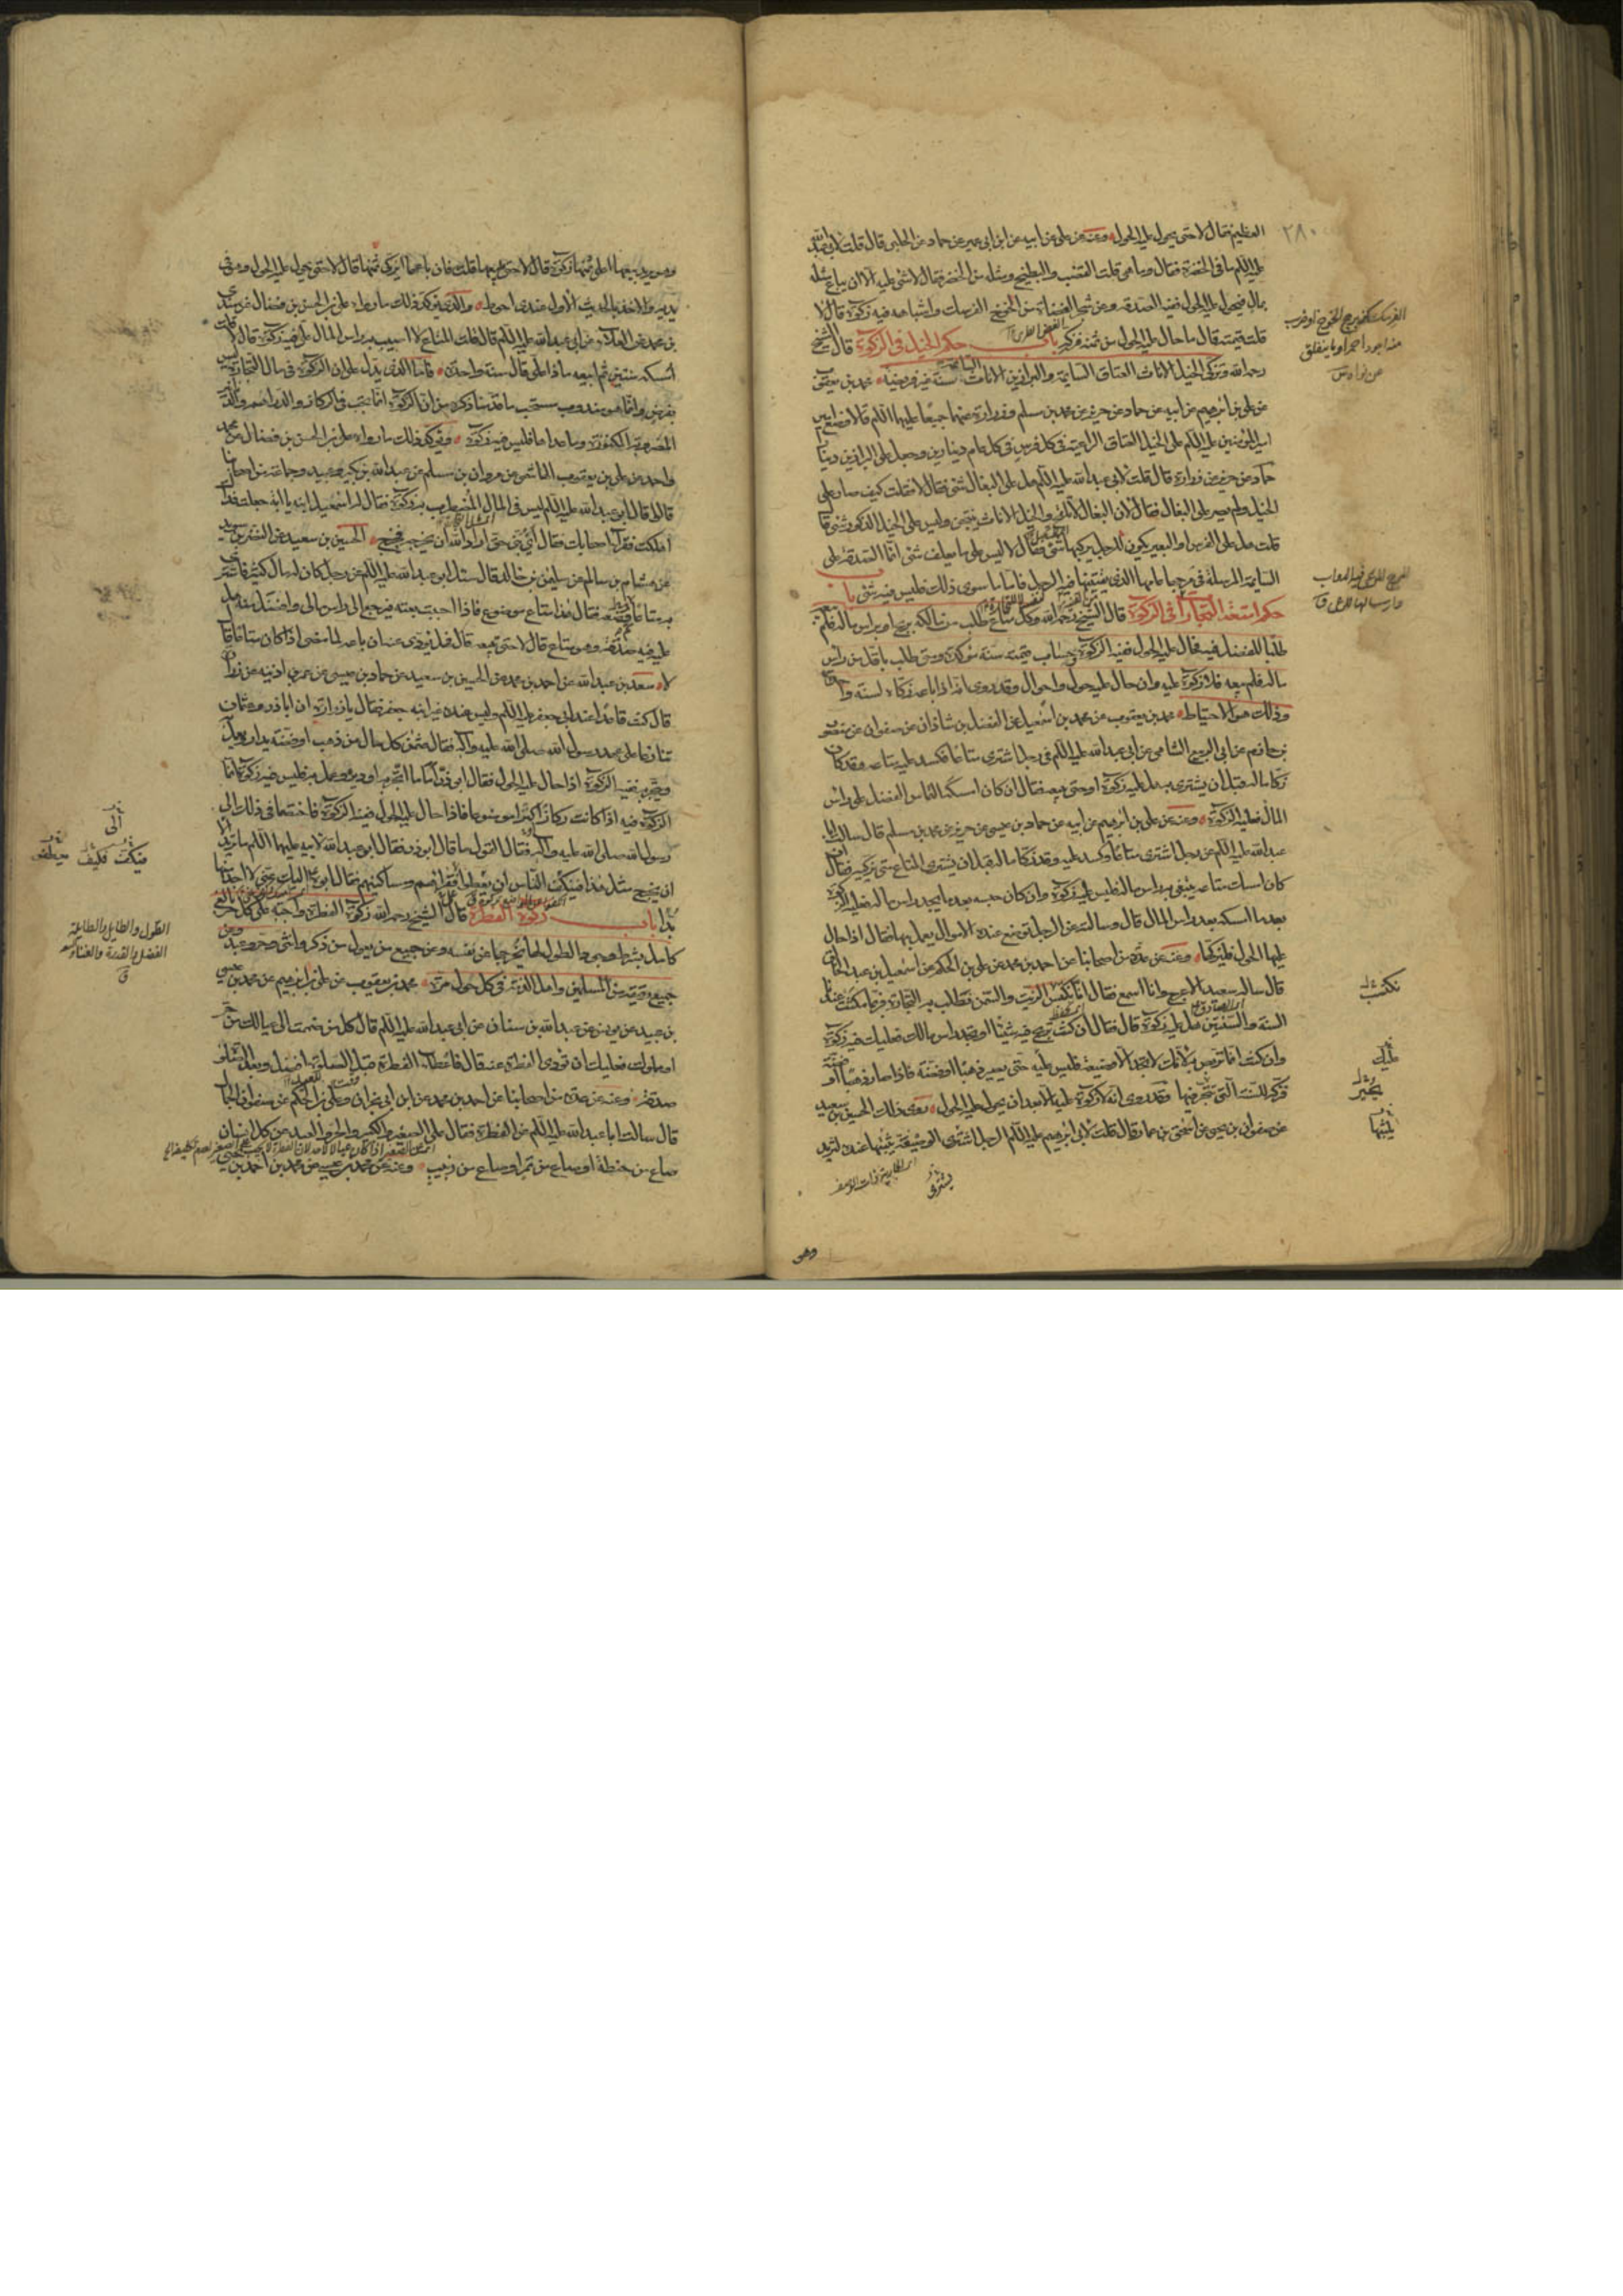 ٢٨٠
العظيم فقال لا حتى يحول عليه الحول وعنه عن علي عن ابيه عن ابن ابي عمير عن حماد عن الحلبي قال قلت لابي عبدالله
عليه السلم ما في الخضرة فقال وما هي قلت القضب والبطيخ ومثله من الخضر فقال لا شئ عليه الا ان يباع مثله
بمال فيحول عليه الحول ففيه الصدقة وعن شجر العضاه من الخوخ الفرسك واشباهه فيه زكوة قال لا
قلت قيمته قال ما حال عليه الحول من ثمنه فزكه باب حكم الخيل في الزكوة قال الشيخ
رحمه الله وتزكى الخيل الاناث العتاق السايمة والبراذين الاناث السايمة سنة غير فريضة محمد بن يعقوب
عن علي بن ابرهيم عن ابيه عن حماد عن حريز عن محمد بن مسلم وزرارة عنهما جميعا عليهما السلم قالا وضع
امير المؤمنين عليه السلم على الخيل العتاق الراعية في كل فرس في كل عام دينارين وجعل على البراذين دينارا
حماد عن حريز عن زرارة قال قلت لابي عبدالله عليه السلم هل على البغال شئ فقال لا فقلت كيف صار على
الخيل ولم يصر على البغال فقال لان البغال لا تلقح والخيل الاناث ينتجن وليس على الخيل الذكور شئ قال
قلت هل على الفرس او البعير يكون للرجل يركبها شئ فقال لا ليس على ما يعلف شئ انما الصدقة على
السايمة المرسلة في مرجها عامها الذي يقتنيها فيه الرجل فاما ما سوى ذلك فليس فيه شئ باب
حكم امتعة التجارات في الزكوة قال الشيخ رحمه الله وكل متاع طلب من مالكه بربح او براس ماله فلم يبعه
طلبا للفضل فيه فحال عليه الحول ففيه الزكوة بحساب قيمته سنة مؤكدة ومتى طلب باقل من راس
ماله فلم يبعه فلا زكوة عليه وان حال عليه حول واحوال وقد روي انه اذا باعه زكاه لسنة واحدة
وذلك هو الاحتياط محمد بن يعقوب عن محمد بن اسمعيل عن الفضل بن شاذان عن صفوان عن منصور
بن حازم عن ابي الربيع الشامي عن ابي عبدالله عليه السلم في رجل اشترى متاعا فكسد عليه متاعه وقد كان
زكا ماله قبل ان يشتري به هل عليه زكوة او حتى يبيعه فقال ان كان امسكه التماس الفضل على راس
المال فعليه الزكوة وعنه عن علي بن ابرهيم عن ابيه عن حماد بن عيسى عن حريز عن محمد بن مسلم قال سالت ابا
عبدالله عليه السلم عن رجل اشترى متاعا وكسد عليه وقد زكا ماله قبل ان يشتري المتاع متى يزكيه فقال ان
كان امسك متاعه يبتغي به راس ماله فليس عليه زكوة وان كان حبسه بعد ما يجد راس ماله فعليه الزكوة
بعد ما امسكه بعد راس المال قال وسالته عن الرجل توضع عنده الاموال يعمل بها فقال اذا حال
عليها الحول فليزكها وعنه عن عدة من اصحابنا عن احمد بن محمد عن علي بن الحكم عن اسمعيل بن عبد الخالق
قال ساله سعيد الاعرج وانا اسمع فقال انا نكبس الزيت والسمن نطلب به التجارة فربما مكث عندنا
السنة والسنتين هل عليه زكوة قال فقال ان كنت تربح فيه شيئا او تجد راس مالك فعليك فيه زكوة
وان كنت انما تربص به لانك لا تجد الا وضيعة فليس عليه حتى يصير ذهبا او فضة فاذا صار ذهبا او
فزكه للسنة التي تتجر فيها وقد روي انه لا زكوة عليه الا بعد ان يحول عليه الحول روى ذلك الحسين بن سعيد
عن صفوان بن يحيى عن اسحق بن عمار قال قلت لابي ابرهيم عليه السلم الرجل اشترى الوصيفة يثبتها عنده لتزيد
وهو
وهو يريد بيعها اعلى ثمنها زكوة قال لا حتى يبيعها قلت فان باعها ايزكي ثمنها قال لا حتى يحول عليه الحول وهو في
يديه والاخذ بالحديث الاول عندي احوط والذي يؤكد ذلك ما رواه علي بن الحسن بن فضال عن سندي
بن محمد عن العلاء عن ابي عبدالله عليه السلم قال قلت المتاع لا اصيب به راس المال علي فيه زكوة قال لا قلت
امسكه سنتين ثم ابيعه ماذا علي قال سنة واحدة فاما الذي يدل على ان الزكوة في مال التجارة ليس
بفرض وانما هو مندوب مستحب ما قدمنا ذكره من ان الزكوة انما تجب في الركاز والدراهم والدنانير
المصروفة المكنوزة وما عداها فليس فيه زكوة ويؤكد ذلك ما رواه علي بن الحسن بن فضال عن محمد
واحمد عن علي بن يعقوب الهاشمي عن مروان بن مسلم عن عبدالله بن بكير وعبيد وجماعة من اصحابنا
قالوا قال ابو عبدالله عليه السلم ليس في المال المضطرب به زكوة فقال له اسمعيل ابنه يا ابه جعلت فداك
اهلكت فقراء اصحابك فقال اي بني حق اراد الله ان يخرجه فخرج الحسين بن سعيد عن النضر بن سويد
عن هشام بن سالم عن سليمن بن خالد قال سئل ابو عبدالله عليه السلم عن رجل كان له مال كثير فاشترى
به متاعا ثم وضعه فقال هذا متاع موضوع فاذا احببت بعته فيرجع الي راس مالي وافضل منه هل
عليه فيه صدقة وهو متاع قال لا حتى تبيعه قال فهل يؤدي عنه ان باعه لما مضى اذا كان متاعا قال
لا سعد بن عبدالله عن احمد بن محمد عن الحسين بن سعيد عن حماد بن عيسى عن عمر بن اذينه عن زرارة
قال كنت قاعدا عند ابي جعفر عليه السلم وليس عنده غير ابنه جعفر فقال يا زرارة ان ابا ذر وعثمان
تنازعا على عهد رسول الله صلى الله عليه وآله فقال عثمن كل مال من ذهب او فضة يدار ويعمل
ويتجر به ففيه الزكوة اذا حال عليه الحول فقال ابو ذر اما ما اتجر به او دير وعمل به فليس فيه زكوة انما
الزكوة فيه اذا كانت ركازا كنزا موضوعا فاذا حال عليه الحول ففيه الزكوة فاختصما في ذلك الى
رسول الله صلى الله عليه وآله فقال القول ما قال ابو ذر فقال ابو عبدالله لابيه عليهما السلم ما تريد الا
ان يخرج مثل هذا فيكف الناس ان يعطوا فقراءهم ومساكينهم فقال ابوه اليك عني لا اجد منها
بدا باب زكوة الفطرة قال الشيخ رحمه الله زكوة الفطرة واجبة على كل حر بالغ
كامل بشرط وجود الطول لها يخرجها عن نفسه وعن جميع من يعول من ذكر وانثى وحر وعبد وعن
جميع رقيقه من المسلمين واهل الذمة في كل حول مرة محمد بن يعقوب عن علي بن ابرهيم عن محمد بن عيسى
بن عبيد عن يونس عن عبدالله بن سنان عن ابي عبدالله عليه السلم قال كل من ضممت الى عيالك من حر
او مملوك فعليك ان تؤدي الفطرة عنه قال واعطاء الفطرة قبل الصلوة افضل وبعد الصلوة
صدقة وعنه عن عدة من اصحابنا عن احمد بن محمد عن ابن ابي نجران وعلي بن الحكم عن صفوان الجمال
قال سالت ابا عبدالله عليه السلم عن الفطرة فقال على الصغير والكبير والحر والعبد عن كل انسان
صاع من حنطة او صاع من تمر او صاع من زبيب وعنه عن محمد بن يحيى عن محمد بن احمد بن يحيى
الطول والطايل والطايلة
الفضل والقدرة والغناء والسعة
ق